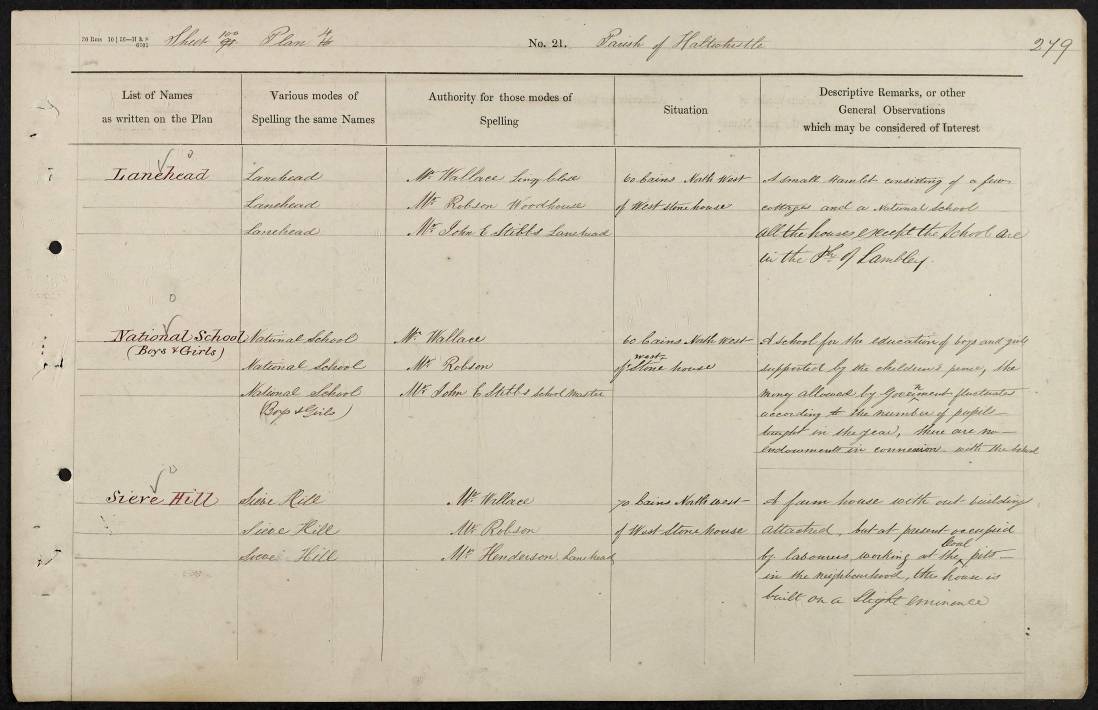 Sheet 100/91 Plan 4/16 No. 21. Parish of Haltwhistle 279
List of Names
as written on the Plan
Various modes of
Spelling the same Names
Authority for those modes of
Spelling
Situation
Descriptive Remarks, or other
General Observations
which may be considered of Interest
Lanehead
Lanehead
Lanehead
Lanehead
Mr. Wallace Ling Close
Mr. Robson Woodhouse
Mr. John E Stibbs Lanehead
60 Cains North West
of West Stone house
A small Hamlet consisting of a few
cottages and a National School
all the houses except the School are
in the Ph. of Lambley.
National School
(Boys & Girls)
National School
National School
National School
(Boys & Girls)
Mr. Wallace
Mr. Robson
Mr. John E Stibbs School Master
60 Cains North West
of West Stone house
A school for the education of boys and girls
supported by the children's pence, the
money allowed by Government fluctuates
according to the number of pupils
taught in the year, there are no
endowments in connexion with the School
Sieve Hill
Sieve Hill
Sieve Hill
Sieve Hill
Mr. Wallace
Mr. Robson
Mr. Henderson Lanehead
70 Cains North west
of West Stone house
A farm house with out building
attached, but at present occupied
by labourers working at the Coal pits
in the neighbourhood, the house is
built on a slight eminence